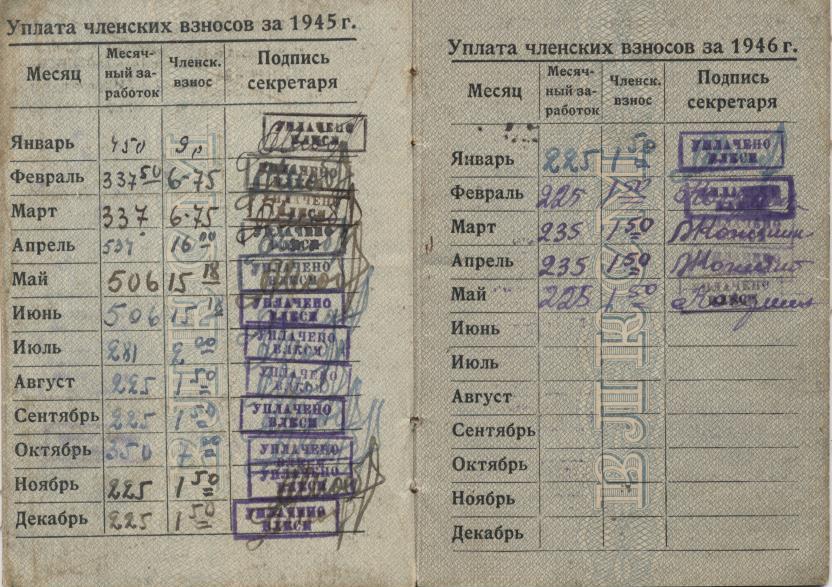 Уплата членских взносов за 1945 г.
Месяц Месяч-ный за-работок Членск. взнос Подпись секретаря
Январь 450 9 УПЛАЧЕНО ВЛКСМ
Февраль 337 50 6-75 УПЛАЧЕНО ВЛКСМ
Март 337 6-75 УПЛАЧЕНО ВЛКСМ
Апрель 16 00 УПЛАЧЕНО ВЛКСМ
Май 506 15 18 УПЛАЧЕНО ВЛКСМ
Июнь 506 15 18 УПЛАЧЕНО ВЛКСМ
Июль 281 2 00 УПЛАЧЕНО ВЛКСМ
Август 225 1 50 УПЛАЧЕНО ВЛКСМ
Сентябрь 225 1 50 УПЛАЧЕНО ВЛКСМ
Октябрь 350 7 00 УПЛАЧЕНО ВЛКСМ
Ноябрь 225 1 50 УПЛАЧЕНО ВЛКСМ
Декабрь 225 1 50 УПЛАЧЕНО ВЛКСМ
Уплата членских взносов за 1946 г.
Месяц Месяч-ный за-работок Членск. взнос Подпись секретаря
Январь 225 1 50 УПЛАЧЕНО ВЛКСМ
Февраль 225 1 50 УПЛАЧЕНО ВЛКСМ
Март 235 1 50
Апрель 235 1 50
Май 225 1 50 УПЛАЧЕНО ВЛКСМ
Июнь
Июль
Август
Сентябрь
Октябрь
Ноябрь
Декабрь
ВЛКСМ